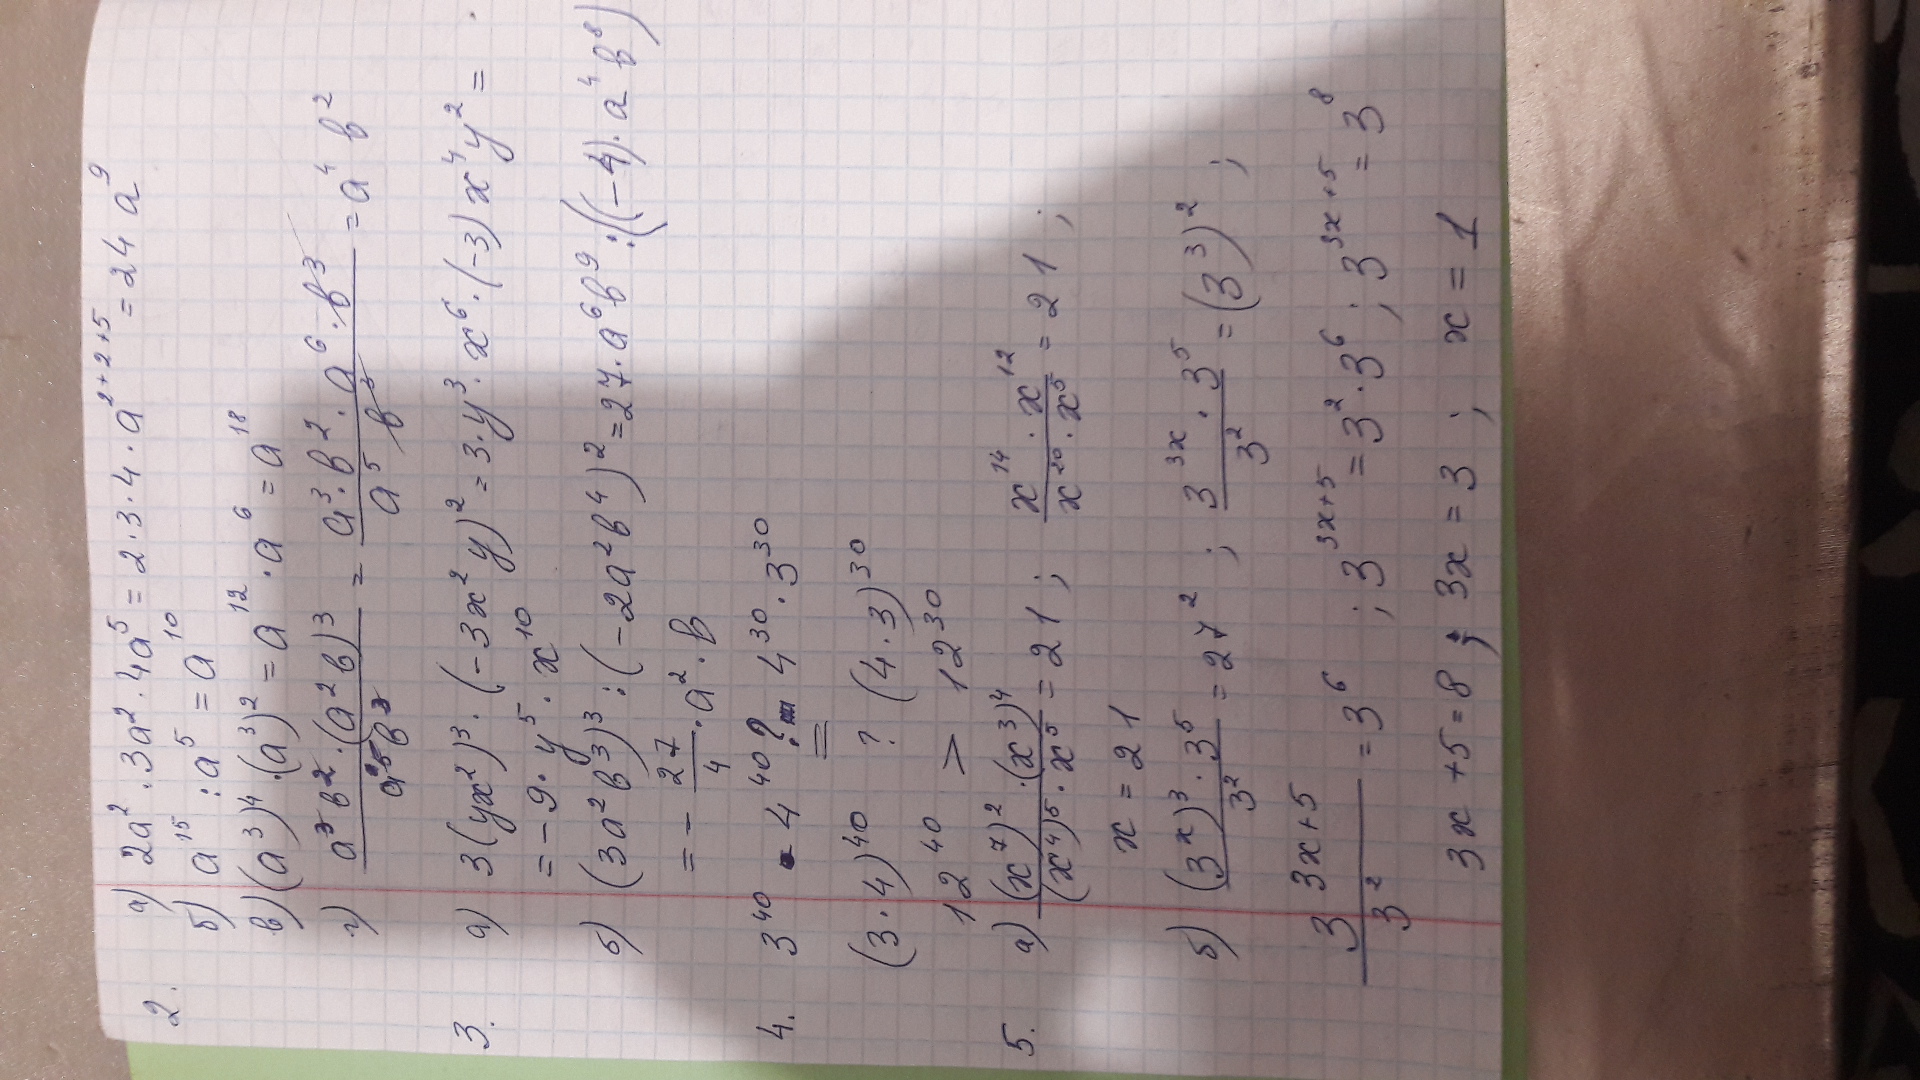 2. а) 2a² · 3a² · 4a⁵ = 2 · 3 · 4 · a²⁺²⁺⁵ = 24 a⁹
б) a¹⁵ : a⁵ = a¹⁰
в) (a³)⁴ · (a³)² = a¹² · a⁶ = a¹⁸
г) a³b² · (a²b)³ / a⁵b³ = a³ · b² · a⁶ · b³ / a⁵ b³ = a⁴ b²
3. а) 3(yx²)³ · (-3x²y)² = 3 · y³ · x⁶ · (-3) x⁴ y² =
= -9 · y⁵ · x¹⁰
б) (3a²b³)³ : (-2a²b⁴)² = 27 · a⁶b⁹ : ((-4) · a⁴b⁸)
= - 27/4 · a² · b
4. 3⁴⁰ · 4⁴⁰ ? 4³⁰ · 3³⁰
(3 · 4)⁴⁰ ? (4 · 3)³⁰
12⁴⁰ > 12³⁰
5. а) (x⁷)² · (x³)⁴ / (x⁴)⁵ · x⁵ = 21 ; x¹⁴ · x¹² / x²⁰ · x⁵ = 21 ;
x = 21
б) (3ˣ)³ · 3⁵ / 3² = 27² ; 3³ˣ · 3⁵ / 3² = (3³)² ;
3³ˣ⁺⁵ / 3² = 3⁶ ; 3³ˣ⁺⁵ = 3² · 3⁶ ; 3³ˣ⁺⁵ = 3⁸
3x + 5 = 8 ; 3x = 3 ; x = 1